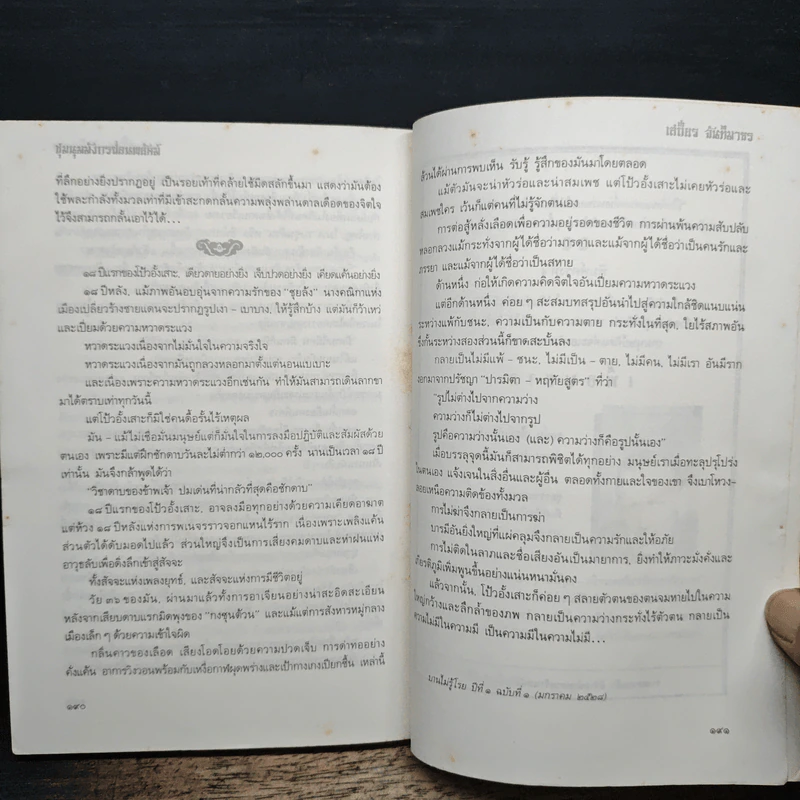 ชุมนุมมังกรปลอมแปลง
ที่ลึกอย่างยิ่งปรากฏอยู่ เป็นรอยเท้าที่คล้ายใช้มีดสลักขึ้นมา แสดงว่ามันต้อง
ใช้พละกำลังทั้งมวลเท่าที่มีเข้าสะกดกลั้นความพลุ่งพล่านดาลเดือดของจิตใจ
ไว้จึงสามารถกลั้นเอาไว้ได้...
๑๘ ปีแรกของโป้วอั้งเสาะ, เดียวดายอย่างยิ่ง เจ็บปวดอย่างยิ่ง เคียดแค้นอย่างยิ่ง
๑๘ ปีหลัง, แม้ภาพอันอบอุ่นจากความรักของ “ชุยล้ง” นางคณิกาแห่ง
เมืองเปลี่ยวร้างชายแดนจะปรากฏรูปเงา - เบาบาง, ให้รู้สึกบ้าง แต่มันก็ว้าเหว่
และเปี่ยมด้วยความหวาดระแวง
หวาดระแวงเนื่องจากไม่มั่นใจในความจริงใจ
หวาดระแวงเนื่องจากมันถูกลวงหลอกมาตั้งแต่นอนแบเบาะ
และเนื่องเพราะความหวาดระแวงอีกเช่นกัน ทำให้มันสามารถเดินลากขา
มาได้ตราบเท่าทุกวันนี้
แต่โป้วอั้งเสาะก็มิใช่คนดื้อรั้นไร้เหตุผล
มัน - แม้ไม่เชื่อมันมนุษย์แต่ก็มั่นใจในการลงมือปฏิบัติและสัมผัสด้วย
ตนเอง เพราะมีแต่ฝึกชักดาบวันละไม่ต่ำกว่า ๑๒,๐๐๐ ครั้ง นานเป็นเวลา ๑๘ ปี
เท่านั้น มันจึงกล้าพูดได้ว่า
“วิชาดาบของข้าพเจ้า ปมเด่นที่น่ากลัวที่สุดคือชักดาบ”
๑๘ ปีแรกของโป้วอั้งเสาะ, อาจลงมือทุกอย่างด้วยความเคียดอาฆาต
แต่ห้วง ๑๘ ปีหลังแห่งการพเนจรราวจอกแหนไร้ราก เนื่องเพราะเพลิงแค้น
ส่วนตัวได้ดับมอดไปแล้ว ส่วนใหญ่จึงเป็นการเสี่ยงคมดาบและห่าฝนแห่ง
อาวุธลับเพื่อดิ่งลึกเข้าสู่สัจจะ
ทั้งสัจจะแห่งเพลงยุทธ์, และสัจจะแห่งการมีชีวิตอยู่
วัย ๓๖ ของมัน, ผ่านมาแล้วทั้งการอาเจียนอย่างน่าสะอิดสะเอียน
หลังจากเสียบดาบแรกมิดพุงของ “กงซุนด้วน” และแม้แต่การสังหารหมู่กลาง
เมืองเล็ก ๆ ด้วยความเข้าใจผิด
กลิ่นคาวของเลือด เสียงโอดโอยด้วยความปวดเจ็บ การด่าทออย่าง
คั่งแค้น อาการวิงวอนพร้อมกับเหงื่อกาฬผุดพร่างและเป้ากางเกงเปียกชื้น เหล่านี้
๑๙๐
เสถียร จันทิมาธร
ล้วนได้ผ่านการพบเห็น รับรู้ รู้สึกของมันมาโดยตลอด
แม้ตัวมันจะน่าหัวร่อและน่าสมเพช แต่โป้วอั้งเสาะไม่เคยหัวร่อและ
สมเพชใคร เว้นก็แต่คนที่ไม่รู้จักตนเอง
การต่อสู้หลั่งเลือดเพื่อความอยู่รอดของชีวิต การผ่านพ้นความสับปลับ
หลอกลวงแม้กระทั่งจากผู้ได้ชื่อว่ามารดาและแม้จากผู้ได้ชื่อว่าเป็นคนรักและ
ภรรยา และแม้จากผู้ได้ชื่อว่าเป็นสหาย
ด้านหนึ่ง ก่อให้เกิดความคิดจิตใจอันเปี่ยมความหวาดระแวง
แต่อีกด้านหนึ่ง ค่อย ๆ สะสมบทสรุปอันนำไปสู่ความใกล้ชิดแนบแน่น
ระหว่างแพ้กับชนะ, ความเป็นกับความตาย กระทั่งในที่สุด, ใยไร้สภาพอัน
ขึงกั้นระหว่างสองส่วนนี้ก็ขาดสะบั้นลง
กลายเป็นไม่มีแพ้ - ชนะ, ไม่มีเป็น - ตาย, ไม่มีคน, ไม่มีเรา อันมีราก
งอกมาจากปรัชญา “ปารมิตา - หฤทัยสูตร” ที่ว่า
“รูปไม่ต่างไปจากความว่าง
ความว่างก็ไม่ต่างไปจากรูป
รูปคือความว่างนั้นเอง (และ) ความว่างก็คือรูปนั้นเอง”
เมื่อบรรลุจุดนี้มันก็สามารถพิชิตได้ทุกอย่าง มนุษย์เราเมื่อทะลุปรุโปร่ง
ในตนเอง แจ้งเจนในสิ่งอื่นและผู้อื่น ตลอดทั้งกายและใจของเขา จึงเบาโหวง-
ลอยเหนือความติดข้องทั้งมวล
การไม่ฆ่าจึงกลายเป็นการฆ่า
บารมีอันยิ่งใหญ่ที่แผ่คลุมจึงกลายเป็นความรักและให้อภัย
การไม่ติดในลาภและชื่อเสียงอันเป็นมายาการ, ยิ่งทำให้ภาวะมั่งคั่งและ
เกียรติภูมิเพิ่มพูนขึ้นอย่างแน่นหนามั่นคง
แล้วจากนั้น, โป้วอั้งเสาะก็ค่อย ๆ สลายตัวตนของตนจมหายไปในความ
ใหญ่กว้างและลึกล้ำของภพ กลายเป็นความว่างกระทั่งไร้ตัวตน กลายเป็น
ความไม่มีในความมี เป็นความมีในความไม่มี...
บานไม่รู้โรย ปีที่ ๑ ฉบับที่ ๑ (มกราคม ๒๕๒๘)
๑๙๑